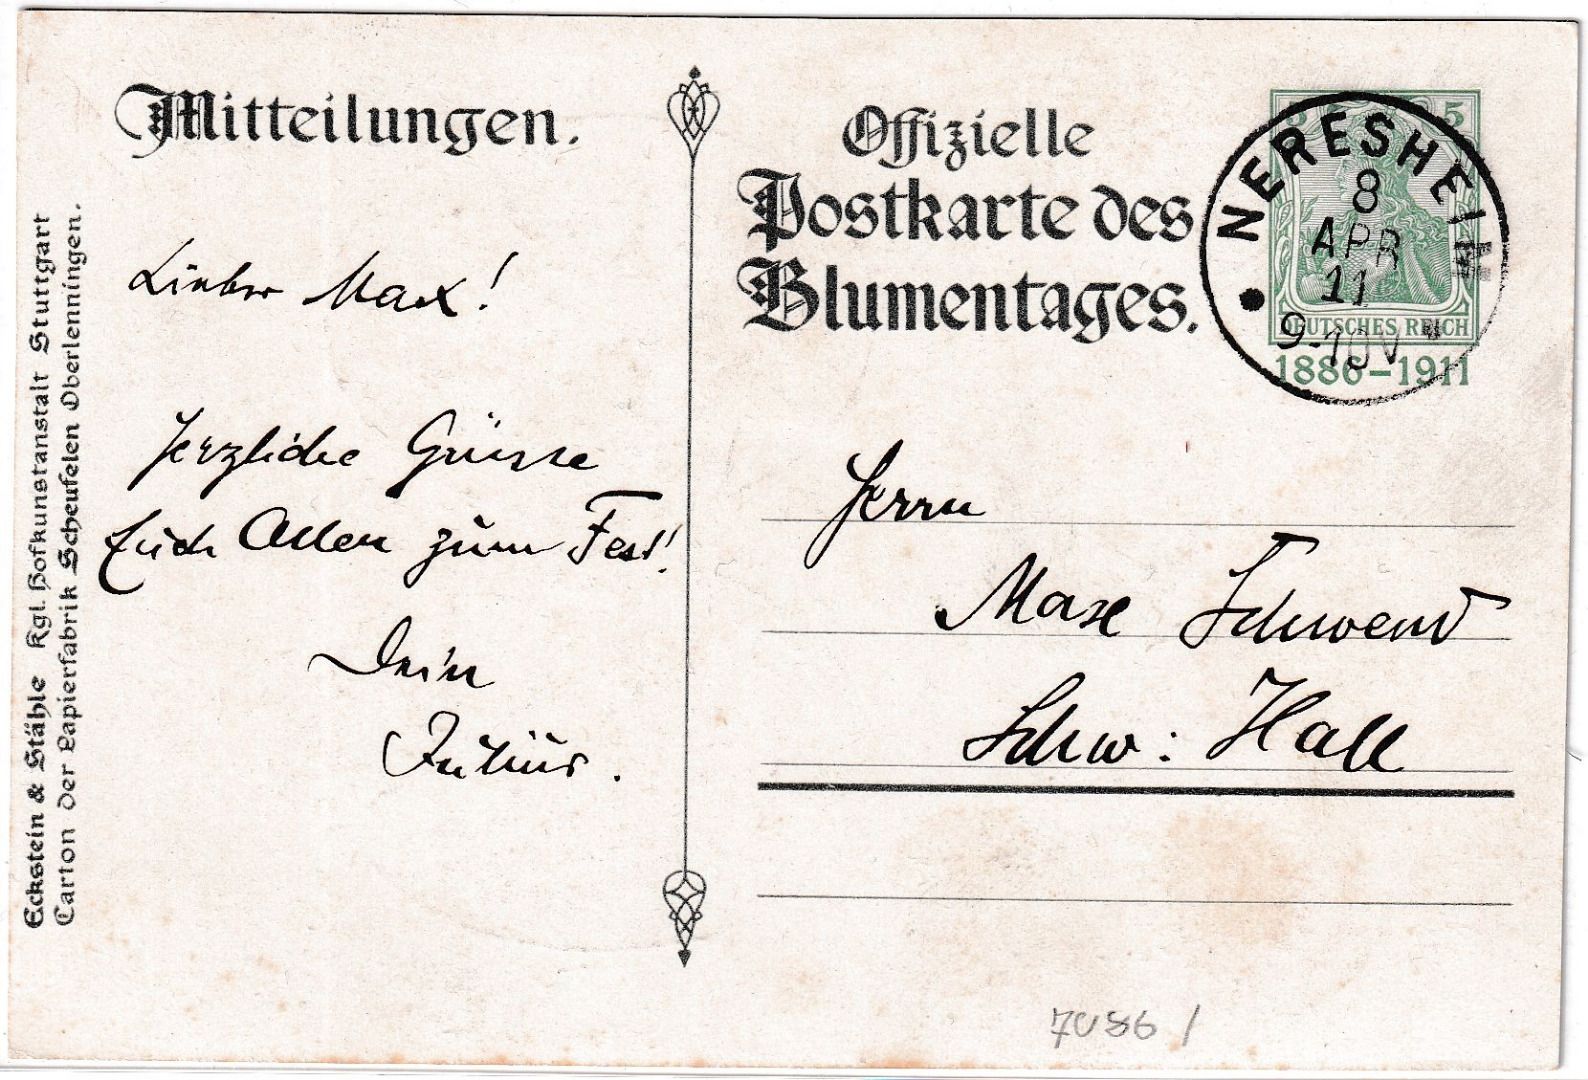 Mitteilungen.
Lieber Max!
Herzliche Grüsse
Euch Allen zum Fest!
Dein
Julius.
Eckstein & Stähle Kgl. Hofkunstanstalt Stuttgart
Carton der Papierfabrik Scheufelen Oberlenningen.
Offizielle
Postkarte des
Blumentages.
5
NERESHEIM
8
APR
11
9-10V
DEUTSCHES REICH
1886–1911
Herrn
Max Schwend
Schw: Hall
7086 /